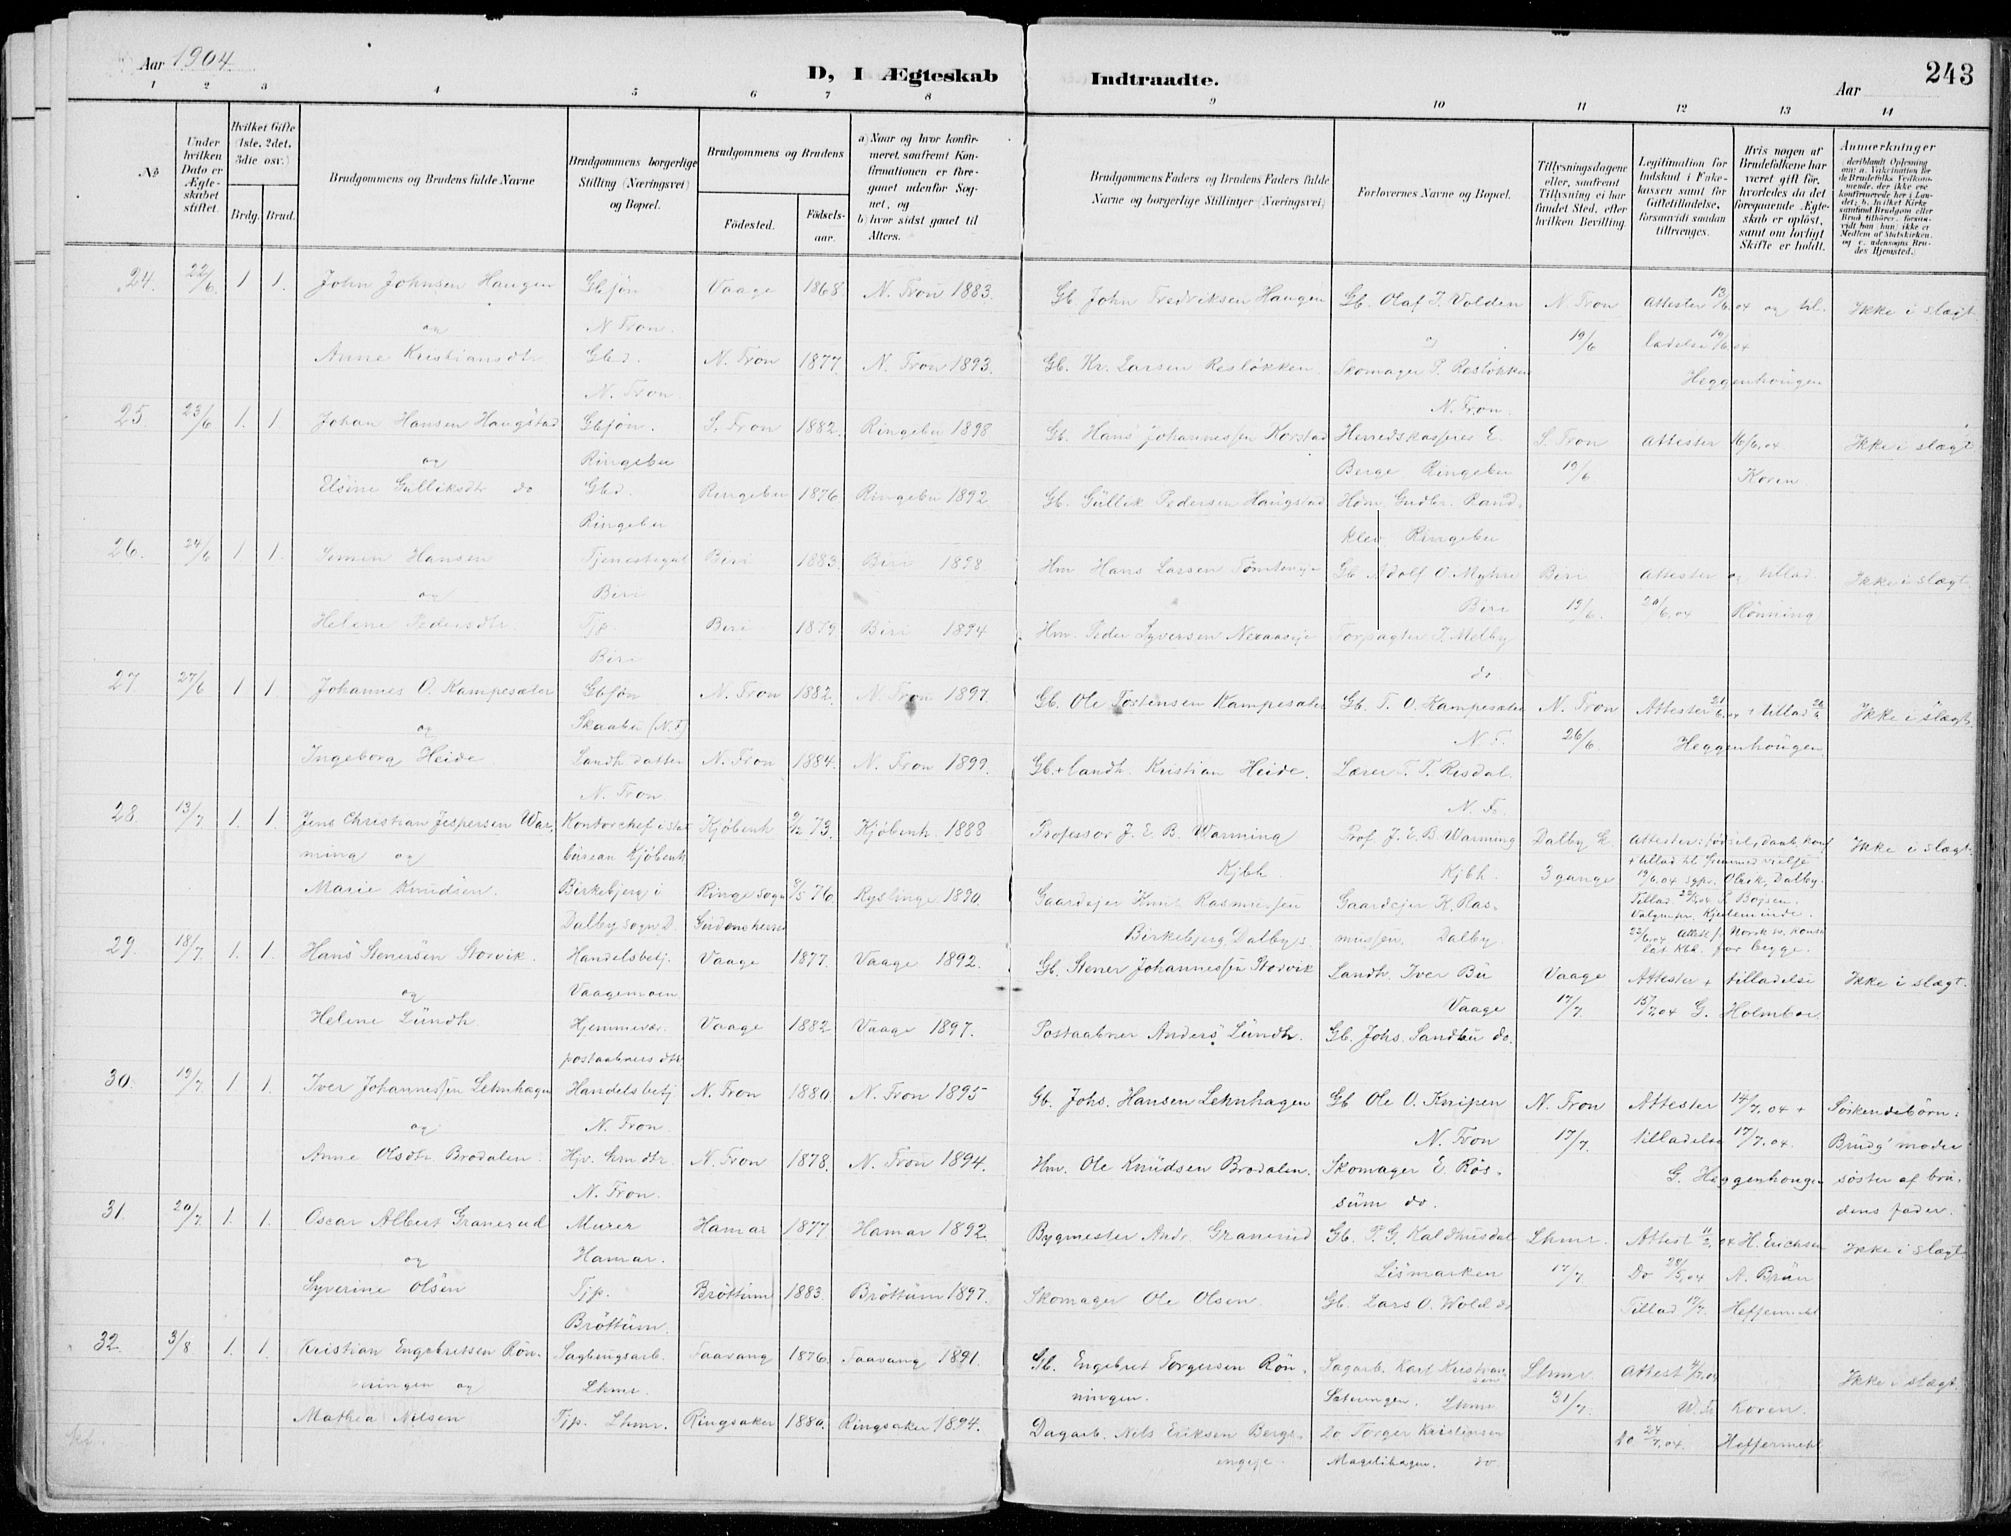 Aar 1904
D, I Ægteskab Indtraadte.
Aar
243
1 2 3 4 5 6 7 8 9 10 11 12 13 14
No
Under hvilken Dato er Ægteskabet stiftet.
Hvilket Gifte (1ste, 2det, 3die osv.)
Brdg. Brud.
Brudgommens og Brudens fulde Navne
Brudgommens borgerlige Stilling (Næringsvei) og Bopæl.
Brudgommens og Brudens
Fødested. Fødselsaar.
a) Naar og hvor konfirmeret, saafremt Konfirmationen er foregaaet udenfor Sognet, og
b) hvor sidst gaaet til Alters.
Brudgommens Faders og Brudens Faders fulde Navne og borgerlige Stillinger (Næringsvei)
Forlovernes Navne og Bopæl.
Tillysningsdagene eller, saafremt Tillysning ei har fundet Sted, efter hvilken Bevilling.
Legitimation for Indskud i Enkekassen samt for Giftetilladelse, forsaavidt saadan tiltrænges.
Hvis nogen af Brudefolkene har været gift før, hvorledes da det foregaaende Ægteskab er opløst, samt om lovligt Skifte er holdt.
Anmærkninger
24. 22/6 1 1. John Johnsen Haugen Gbsøn Vaage 1868. N. Fron 1883. Gb. John Fredriksen Haugen Gb. Olaf T. Volden N. Fron Attester 13/6.04 og til Ikke i slægt.
og N. Fron. og 19/6 ladelse 19/6.04
Anne Kristiansdtr Gbd. N. Fron 1877. N. Fron 1893. Gb. Kr. Larsen Resløkken. Skomager P. Resløkken Heggenhougen
N. Fron N. Fron.
25. 23/6 1. 1 Johan Hansen Haugstad Gbsøn. S. Fron 1882. Ringebu 1898 Gb. Hans Johannessen Korstad Herredskasserer E. S. Fron Attester 16/6.04 Ikke i slægt
og Ringebu Berge Ringebu 19/6 Koren.
Elsine Gulliksdtr do Gbd. Ringebu 1876 Ringebu 1892 Gb. Gullik Pedersen Haugstad Hdm. Gudbr. Rand-
Ringebu klev Ringebu
26. 24/6 1 1. Simen Hansen Tjenestegut Biri 1883. Biri 1898 Hm Hans Larsen Gb Adolf O. Myhre Biri Attester og tillad. Ikke i slægt.
og Biri Biri 19/6. 20/6.04 Rønning
Helene Pedersdtr. Tjp. Biri 1879. Biri 1894 Hm. Peder Syversen Forpagter J. Melby
Biri do
27 27/6 1 1. Johannes O. Kampesæter Gbsøn N. Fron 1882. N. Fron 1897. Gb. Ole Tostensen Kampesæter Gb. T. O. Kampesæter N. Fron Attester + tillad Ikke i slægt.
og Skaabu (N. F) N F. 26/6. Heggenhougen
Ingeborg Heide Landh. datter N. Fron 1884. N. Fron 1899. Gb. + landh. Kristian Heide. Lærer T. T. Risdal.
N. Fron N. F.
28. 13/7 1. 1. Jens Christian Jespersen War- Kontorchef i stat Kjøbenh 9/12 73. Kjøbenh. 1888 Professor J. E. B. Warming Prof J. E. B Warming Dalby K. Attester: fødsel, daab, konf Ikke i slægt.
ming og bureau Kjøbenh Kjbh. Kjbh. 3 gange + tillad til
Marie Knudsen. Birkebjerg i Ringe sogn 9/5 76. Ryslinge 1890. Gaardejer Knut Rasmussen Gaardejer K. Ras-
Dalby sogn D. Birkebjerg, Dalby s. mussen. Dalby Kjerteminde.
29. 18/7 1. 1. Hans Stenersen Storvik. Handelsbetj. Vaage 1877. Vaage 1892. Gb. Stener Johannessen Storvik Landh. Iver Bu Vaage Attester + tilladelse Ikke i slægt.
og Vaagemoen Vaage 17/7. 15/7.04 G. Holmboe
Helene Lundh. Hjemmevær. Vaage 1882 Vaage 1897. Postaabner Anders Lundh. Gb. Johs. Sandbu do.
postaabners dtr
30. 19/7 1 1. Iver Johannessen Lehnhagen Handelsbetj N. Fron 1880. N. Fron 1895 Gb. Johs. Hansen Lehnhagen Gb Ole O. Knipen N. Fron Attester 14/7.04 + Søskendebørn:
og N. Fron. N. Fron 17/7. tilladelse 17/7.04. Brudg' moder
Anne Olsdtr. Brodalen. Hjv. N. Fron 1878. N. Fron 1894. Hm. Ole Knudsen Brodalen. Skomager E. Røs- G. Heggenhougen søster af bru-
N. Fron. sum do. dens fader.
31. 20/7. 1. 1. Oscar Albert Granerud Murer Hamar 1877 Hamar 1892. Bygmester Andr. Granerud Gb. P. G. Kaldhusdal Lhmr. Attest 04 H. Erichsen Ikke i slægt.
og Hamar. Lismarken 17/7. Do 04 A. Brun
Syverine Olsen Tjp. Brøttum 1883. Brøttum 1897. Skomager Ole Olsen. Gb. Lars O. Wold do Tillad 17/7. Heffermehl
Brøttum.
32. 3/8 1. 1 Kristian Engebretsen Røn- Sagbrugsarb. Faavang 1876. Faavang 1891. Gb. Engebret Torgersen Røn- Sagarb. Karl Kristian- Lhmr Attest Ikke i slægt.
ningen og Lhmr. ningen. sen Lhmr 31/7. Koren.
Mathea Nilsen Tjp. Lhmr. Ringsaker 1880. Ringsaker 1894. Dagarb. Nils Eriksen Bergs- Do Torger Kristensen do 24/7.04. Heffermehl
engeje. do